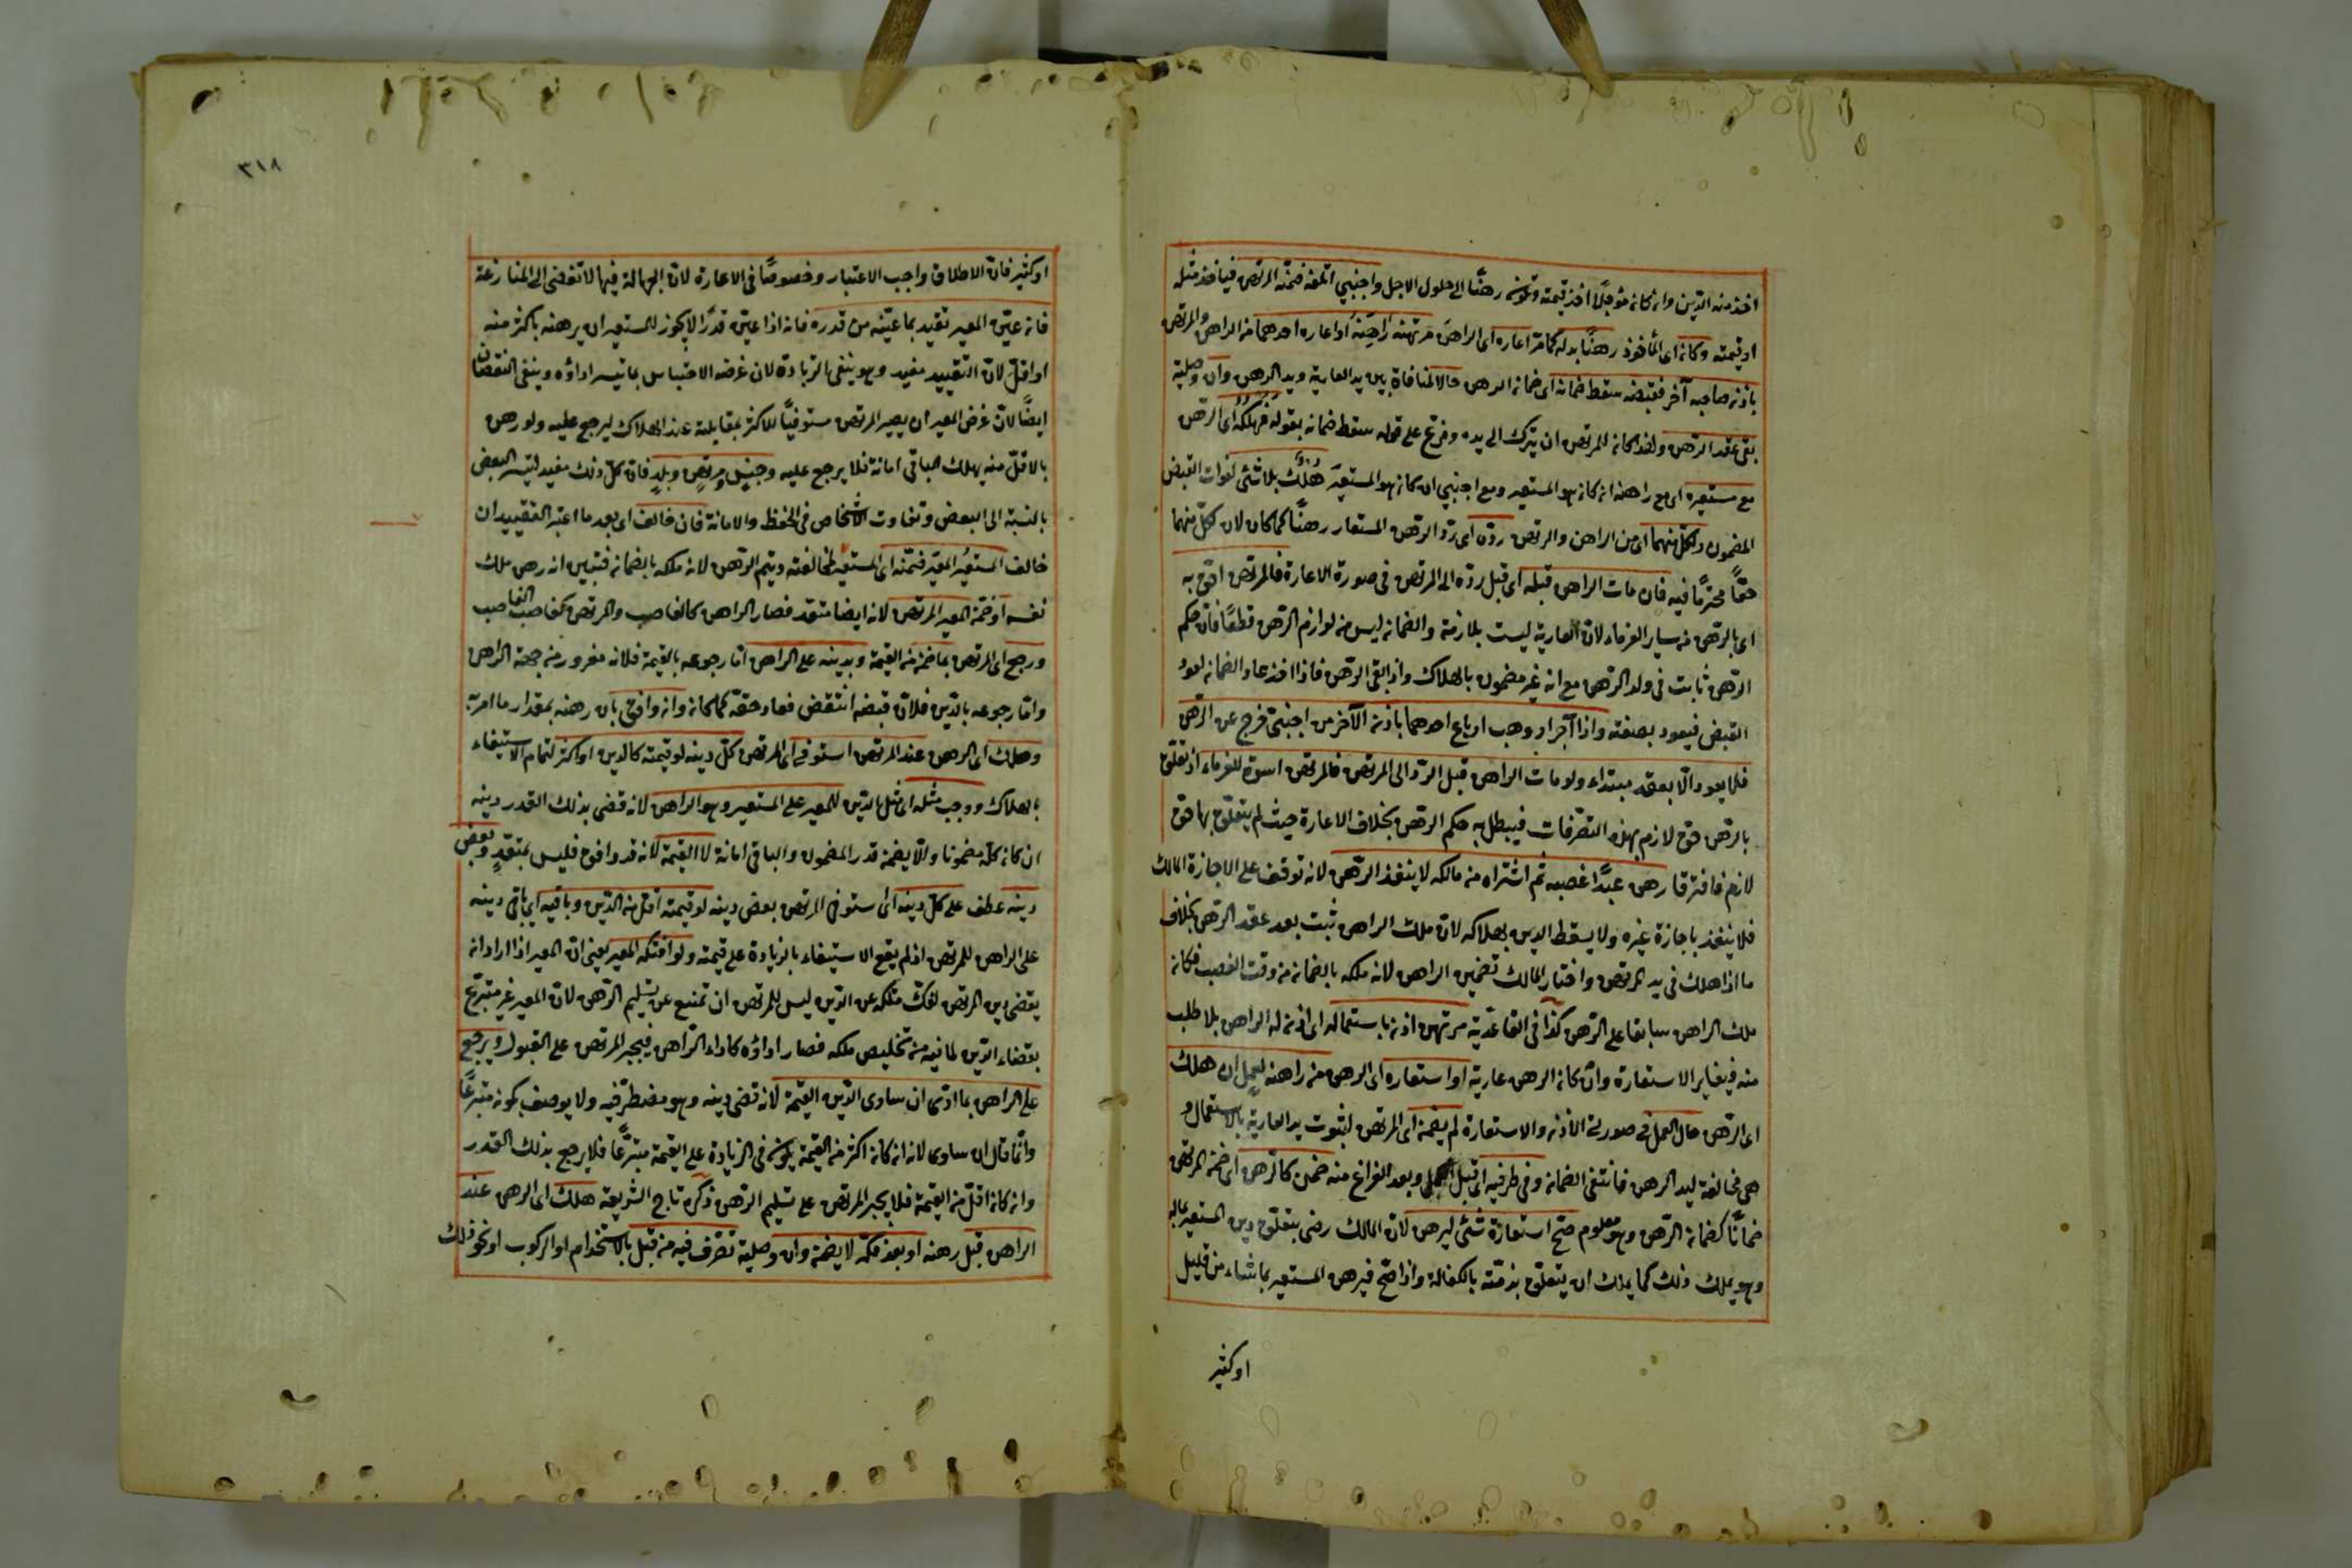 اخذ منه الدين وان كان مؤجلًا اخذ قيمته وتكون رهنًا الى حلول الاجل واجنبي اتلفه ضمنه المرتهن فياخذ مثله
او قيمته وكان اى المأخوذ رهنًا بدله كما مرّ اعاره اى الراهن مرتهنه راهنه او اعاره احدهما من الراهن والمرتهن
باذن صاحبه آخر فقبضه سقط ضمانه اى ضمان الرهن حالا لمنافاة بين يد العارية ويد الرهن وان وصلية
بقى عقد الرهن ولهذا كان للمرتهن ان يترك الى يده وفرع على قوله سقط ضمانه بقوله فهلكه اى الرهن
مع مستعيره اى مع راهنه ان كان هو المستعير ومع اجنبي ان كان هو المستعير هُلْكٌ بلا شئ لفوات القبض
المضمون ولكل منهما اى من الراهن والمرتهن ردّه اى ردّ الرهن المستعار رهنًا كما كان لان لكلّ منهما
حقًّا محترمًا فيه فان مات الراهن قبله اى قبل ردّه الى المرتهن فى صورة الاعارة فالمرتهن احق به
اى بالرهن من ساير الغرماء لانّ العارية ليست بلازمة والضمان ليس من لوازم الرهن قطعًا فان حكم
الرهن ثابت فى ولد الرهن مع انه غير مضمون بالهلاك واذا بقى الرهن فاذا اخذ عاد الضمان لعود
القبض فيعود بصفته واذا آجر او وهب او باع احدهما باذن الآخر من اجنبىّ خرج عن الرهن
فلا يعود الّا بعقد مبتداء ولو مات الراهن قبل الردّ الى المرتهن فالمرتهن اسوة للغرماء اذ تعلق
بالرهن حق لازم بهذه التصرفات فيبطل به حكم الرهن بخلاف الاعارة حيث لم يتعلق بها حق
لازم فافترقا رهن عبدًا غصبه ثم اشتراه من مالكه لا ينفذ الرهن لانه توقف على الاجازة المالك
فلا ينفذ باجازة غيره ولا يسقط الدين بهلاكه لانّ ملك الراهن ثبت بعد عقد الرهن بخلاف
ما اذا هلك فى يد المرتهن واختار المالك تضمين الراهن لانه ملكه بالضمان من وقت الغصب فكان
ملك الراهن سابقا على الرهن كذا فى القاعدية مرتهن اذن باستعماله اى اذن له الراهن بلا طلب
منه فيغاير الاستعارة وان كان الرهن عارية او استعاره اى الرهن من راهنه لعمل ان هلك
اى الرهن حال العمل فى صورتى الاذن والاستعارة لم يضمن اى المرتهن لثبوت يد العارية بالاستعمال و
هى مخالفة ليد الرهن فانتفى الضمان وفى طرفيه اى قبل العمل وبعد الفراغ منه ضمن كالرهن اى ضمن المرتهن
ضمانًا كضمان الرهن وهو معلوم صح استعارة شئ ليرهن لانّ المالك رضى بتعلق دين المستعير بماله
وهو يملك ذلك كما يملك ان يتعلق بذمّته بالكفالة واذا صح فيرهن المستعير بما شاء من قليل
او كثير
٣١٨
او كثير فانّ الاطلاق واجب الاعتبار وخصوصًا فى الاعارة لانّ الجهالة فيها لا تفضى الى المنازعة
فان عيّن المعير تقيد بما عيّنه من قدره فانه اذا عيّن قدرًا لا يجوز للمستعير ان يرهنه باكثر منه
او اقلّ لانّ التقييد مفيد وهو ينفى الزيادة لان غرضه الاحتباس بما تيسر اداؤه وينفى النقصان
ايضًا لانّ غرض المعير ان يصير المرتهن مستوفيًا للاكثر بمقابلته عند الهلاك ليرجع عليه ولو رهن
بالاقلّ منه يهلك الباقى امانة فلا يرجع عليه وجنسٍ ومرتهنٍ وبلدٍ فانّ كلّ ذلك مفيد لتيسر البعض
بالنسبة الى البعض وتفاوت الاشخاص فى الحفظ والامانة فان خالف اى بعد ما اعتبر التقييد ان
خالف المستعيرُ المعيرَ ضمّنه اى المستعير لمخالفته ويتم الرهن لانه ملكه بالضمان فتبين انه رهن ملك
نفسه او ضمّن المعير المرتهن لانه ايضا متعد فصار الراهن كالغاصب والمرتهن كغاصب الغاصب
ورجع اى المرتهن بما ضمن من القيمة وبدينه على الراهن اما رجوعه بالقيمة فلانه مغرور من جهة الراهن
وامّا رجوعه بالدين فلانّ قبضه انتقض فعاد حقه كما كان وان وافق بان رهنه بمقدار ما امر به
وهلك اى الرهن عند المرتهن استوفى اى المرتهن كلّ دينه لو قيمته كالدين او اكثر لتمام الاستيفاء
بالهلاك ووجب مثله اى مثل الدين للمعير على المستعير وهو الراهن لانه قضى بذلك القدر دينه
ان كان كله مضمونا والّا يضمن قدر المضمون والباقى امانة لا القيمة لانه قد وافق فليس بمتعدٍ وبعض
دينه عطف على كلّ دينه اى استوفى المرتهن بعض دينه لو قيمته اقل من الدين وباقيه اى باقى دينه
على الراهن للمرتهن اذ لم يقع الاستيفاء بالزيادة على قيمته ولو افتكه المعير يعنى انّ المعير اذا اراد ان
يقضى دين المرتهن لفكّ ملكه عن الدين ليس للمرتهن ان تمنع عن تسليم الرهن لانّ المعير غير متبرّع
بقضاء الدين لما فيه من تخليص ملكه فصار اداؤه كاداء الراهن فيجبر المرتهن على القبول ويرجع
على الراهن بما ادّى ان ساوى الدين القيمة لانه قضى دينه وهو مضطرّ فيه ولا يوصف كونه متبرعًا
وانّما قال ان ساوى لانه ان كان اكثر من القيمة يكون فى الزيادة على القيمة متبرّعًا فلا يرجع بذلك القدر
وان كان اقلّ من القيمة فلا يجبر المرتهن على تسليم الرهن ذكره تاج الشريعة هلك اى الرهن عند
الراهن قبل رهنه او بعد فكّه لا يضمن وان وصلية تصرّف فيه من قبل بالاستخدام او الركوب او نحو ذلك